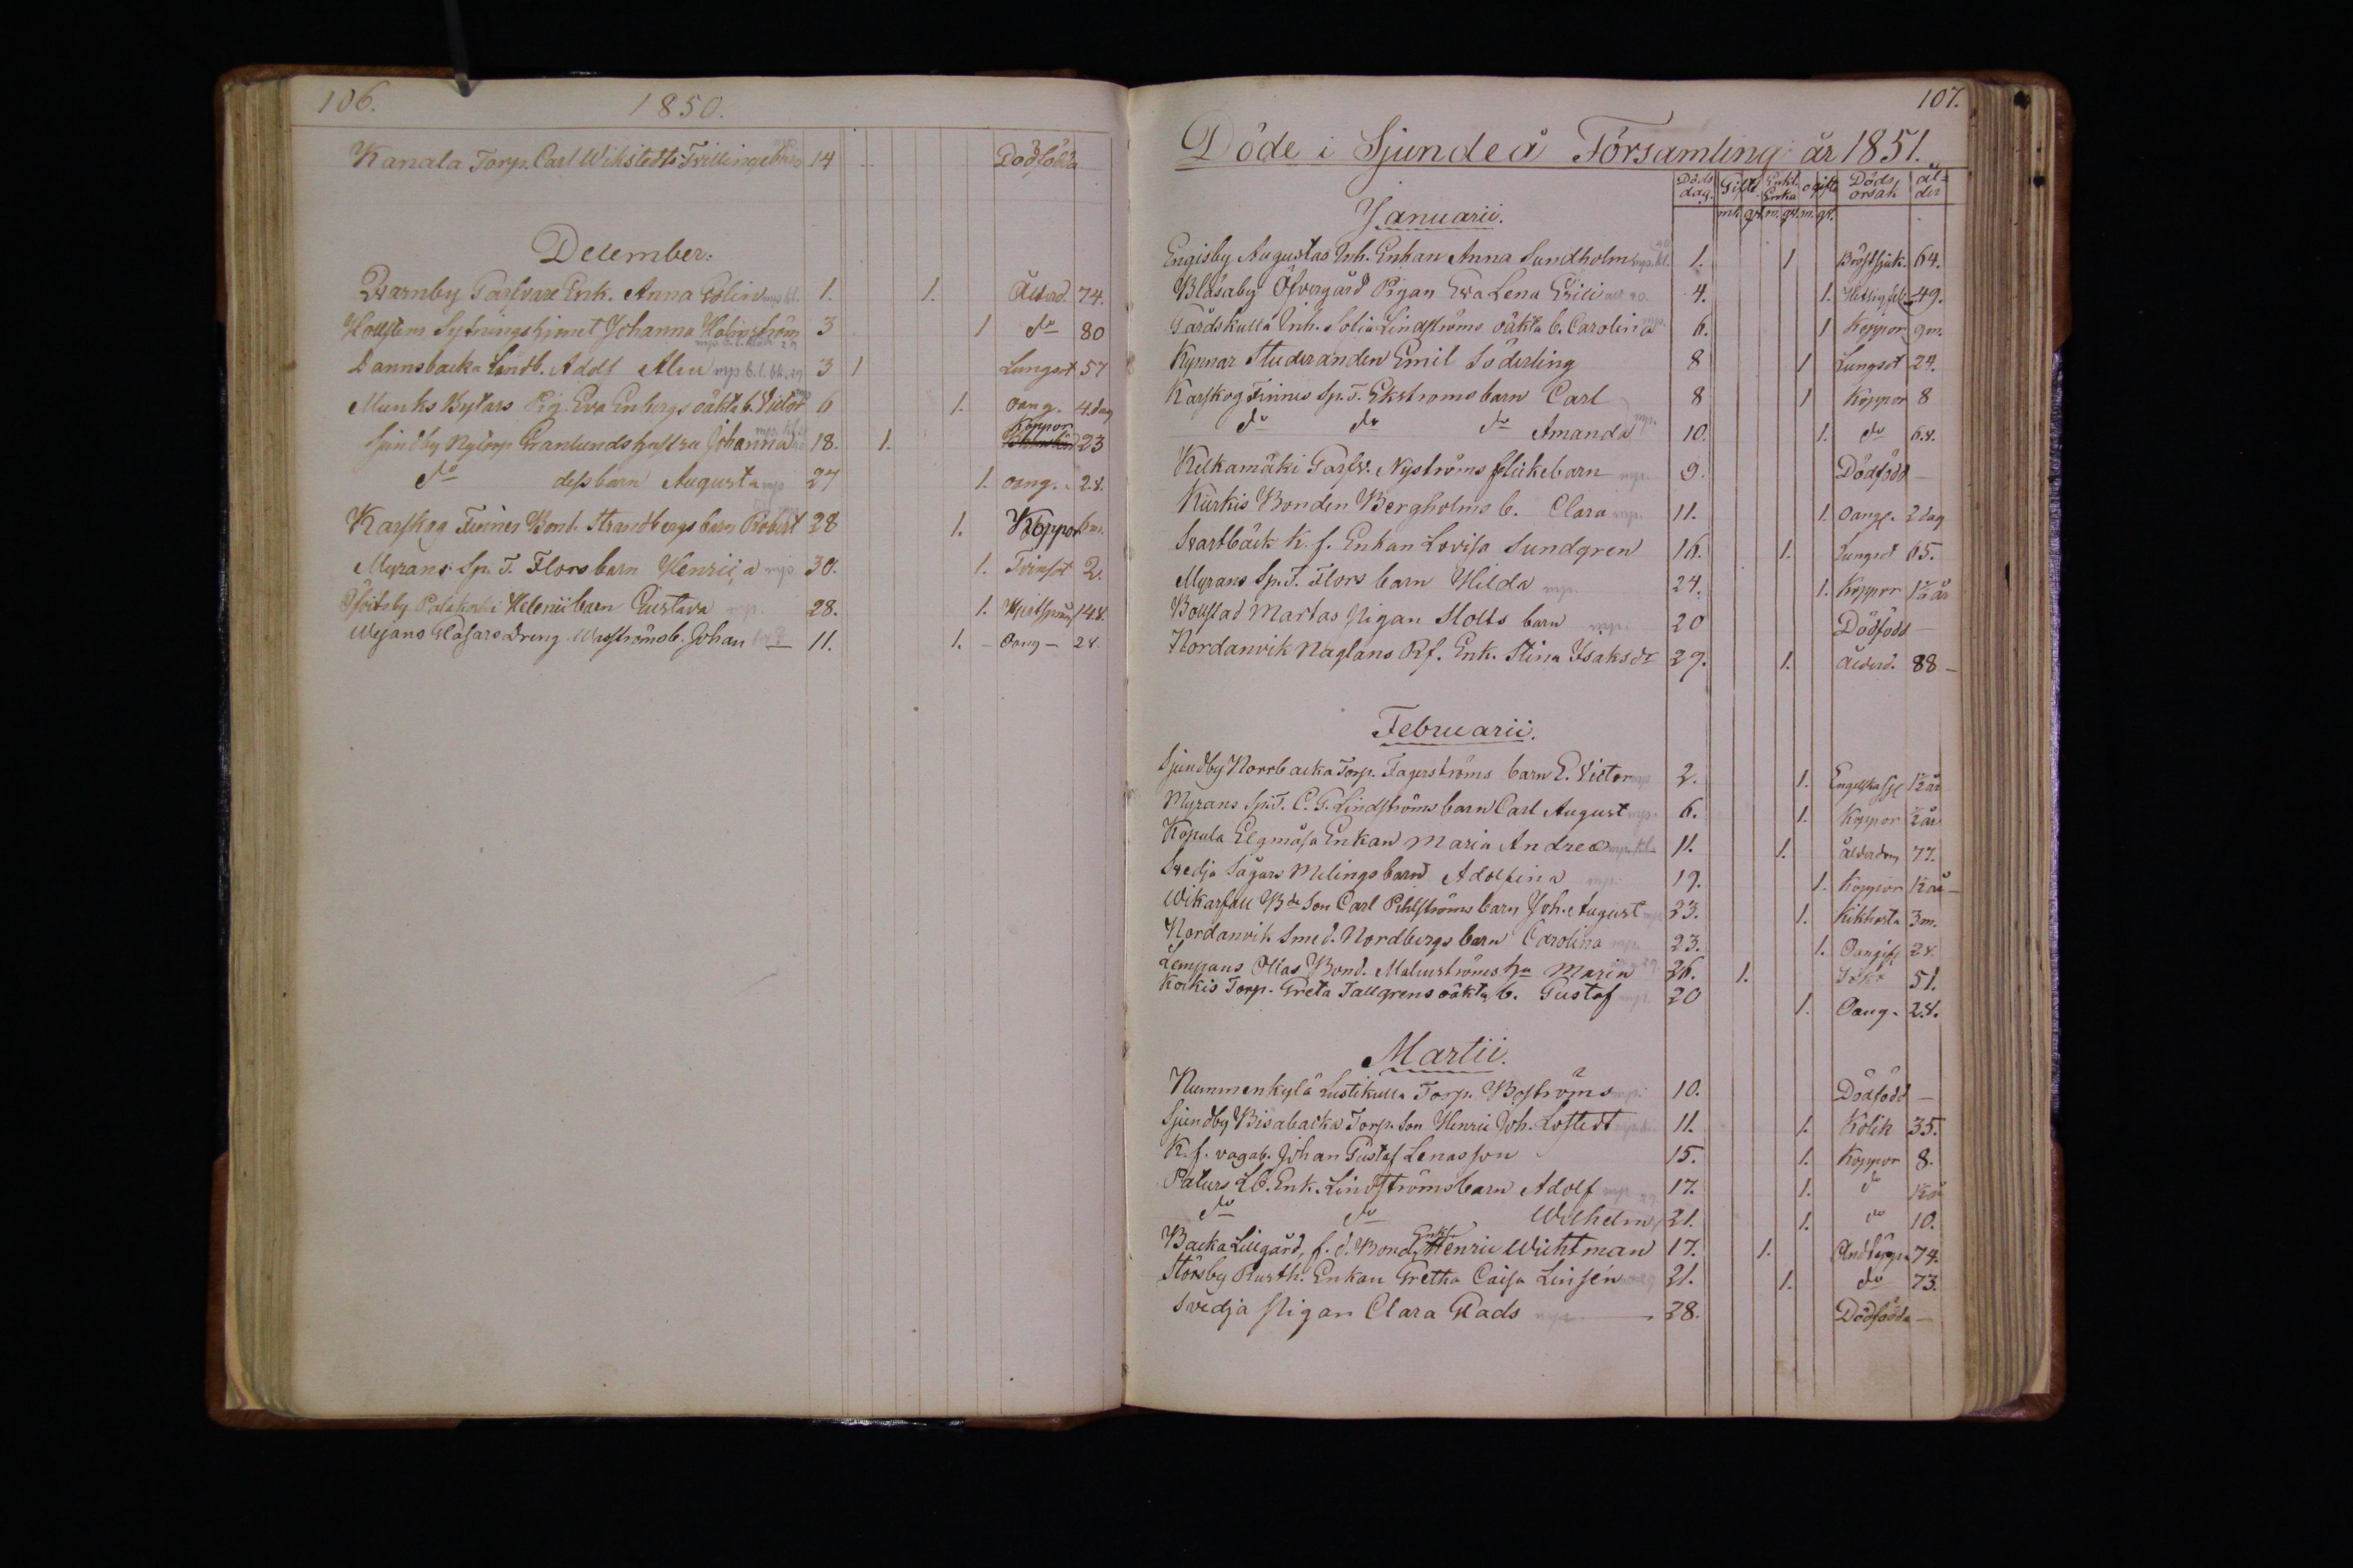 106. 1850.
Kanala Torp. Carl Wikstedts Tvillingebarn 14 Dödfödda
December.
Qvarnby Garfvare Enk. Anna Eolin 1. 1. Ålderd. 74.
Hollstein Sytningshjonet Johanna Holmström 3 1 do 80
Dannsbacka Landb. Adolf Alen 3 1 Lungsot 57
Munks Bytars Pig. Eva Enbergs oäkta b. Victor 6 1. oang. 4 dag
Sjundby Nytorp Granlunds hustru Johanna 18. 1. Koppor 23
do dess barn Augusta 27 1. oang. 2 v.
Karskog Finnes Bond. Strandbergs barn Robert 28 1. Koppor 6 m.
Myrans Sp. T. Flors barn Henrica 30. 1. Tvinsot 2.
Palakoski Helenii barn Gustava 28. 1. 14 v.
Wejans Glasars Dreng Wasströms b. Johan 11. 1. Oang 2 v.
107.
Döde i Sjundeå Församling år 1851.
Döds dag. Gifte. Enkl. Enka ogifte Döds orsak ål- der
mk. qk. m. qk. m. qk.
Januarii.
Engisby Augustas Inh. Enkan Anna Sundholm 1. 1 Bröstsjuk. 64.
Blåsaby Öfvergård Pigan Eva Lena 4. 1. 49.
Gårdskulla Inh. Sofia Lindströms oäkta b. Carolina 6. 1 Koppor 9 m.
Kynnar Studeranden Emil Söderling 8 1 Lungsot 24.
Karskog Finnes Sp. T. Ekstroms barn Carl 8 1 Koppor 8
do do do Amanda 10. 1. do 6 v.
Kelkamäki Garfv. Nyströms flickebarn 9. Dödfödd
Kurkis Bonden Bergholms b. Clara 11. 1. Oang. 2 dag
Svartbäck K. f. Enkan Lovisa Sundgren 16. 1. Lungsot 65.
Myrans Sp. T. Flors barn Hilda 24. 1. Koppor 1/2 år
Bollstad Martas Pigan Stolts barn 20 Dödfödd
Nordanvik Naglans Rf. Enk. Stina Isaksdr 29. 1. Ålderd. 88
Februarii.
Sjundby Norrbacka Torp. Fagerströms barn E. Victor 2. 1. Engelska sj. 1/2 år
Myrans Sp. T. C. G. Lindströms barn Carl August 6. 1. Koppor 1/2 år
Kopula Elgmåsa Enkan Maria Andrea 11. 1. ålderdom 77.
Svedja Sågars Melings barn Adolfina 19. 1. Koppor 1/2 år
Wikarskull Bde Son Carl Pihlströms barn Joh. August 23. 1. Kikhosta 3 m.
Nordanvik Smed. Nordbergs barn Carolina 23. 1. Oangif. 2 v.
Lempans Ollas Bond. Malmströms hu Maria 26. 1. 51.
Kockis Torp. Greta Tallgrens oäkta b. Gustaf 20 1. Oang. 2 v.
Martii.
Nummenkylä Lustikulla Torp. Boströms 10. Dödfödd
Sjundby Bisabacka Torp. Son Henric Joh. Lofstedt 11. 1. Kolik 35.
K. f. vagab. Johan Gustaf Lenasson 15. 1. Koppor 8.
Palurs Lb. Enk. Lindströms barn Adolf 17. 1. do 1/2 år
do do Wilhelm 21. 1. do 10.
Backa Lillgård, f. d. Bond. Enkl. Henric Wichtman 17. 1. Andtäppa 74.
Störsby Rusth. Enkan Gretha Caisa Linsén 21. 1. do 73.
Svedja Pigan Clara Glads 28. Dödfödda